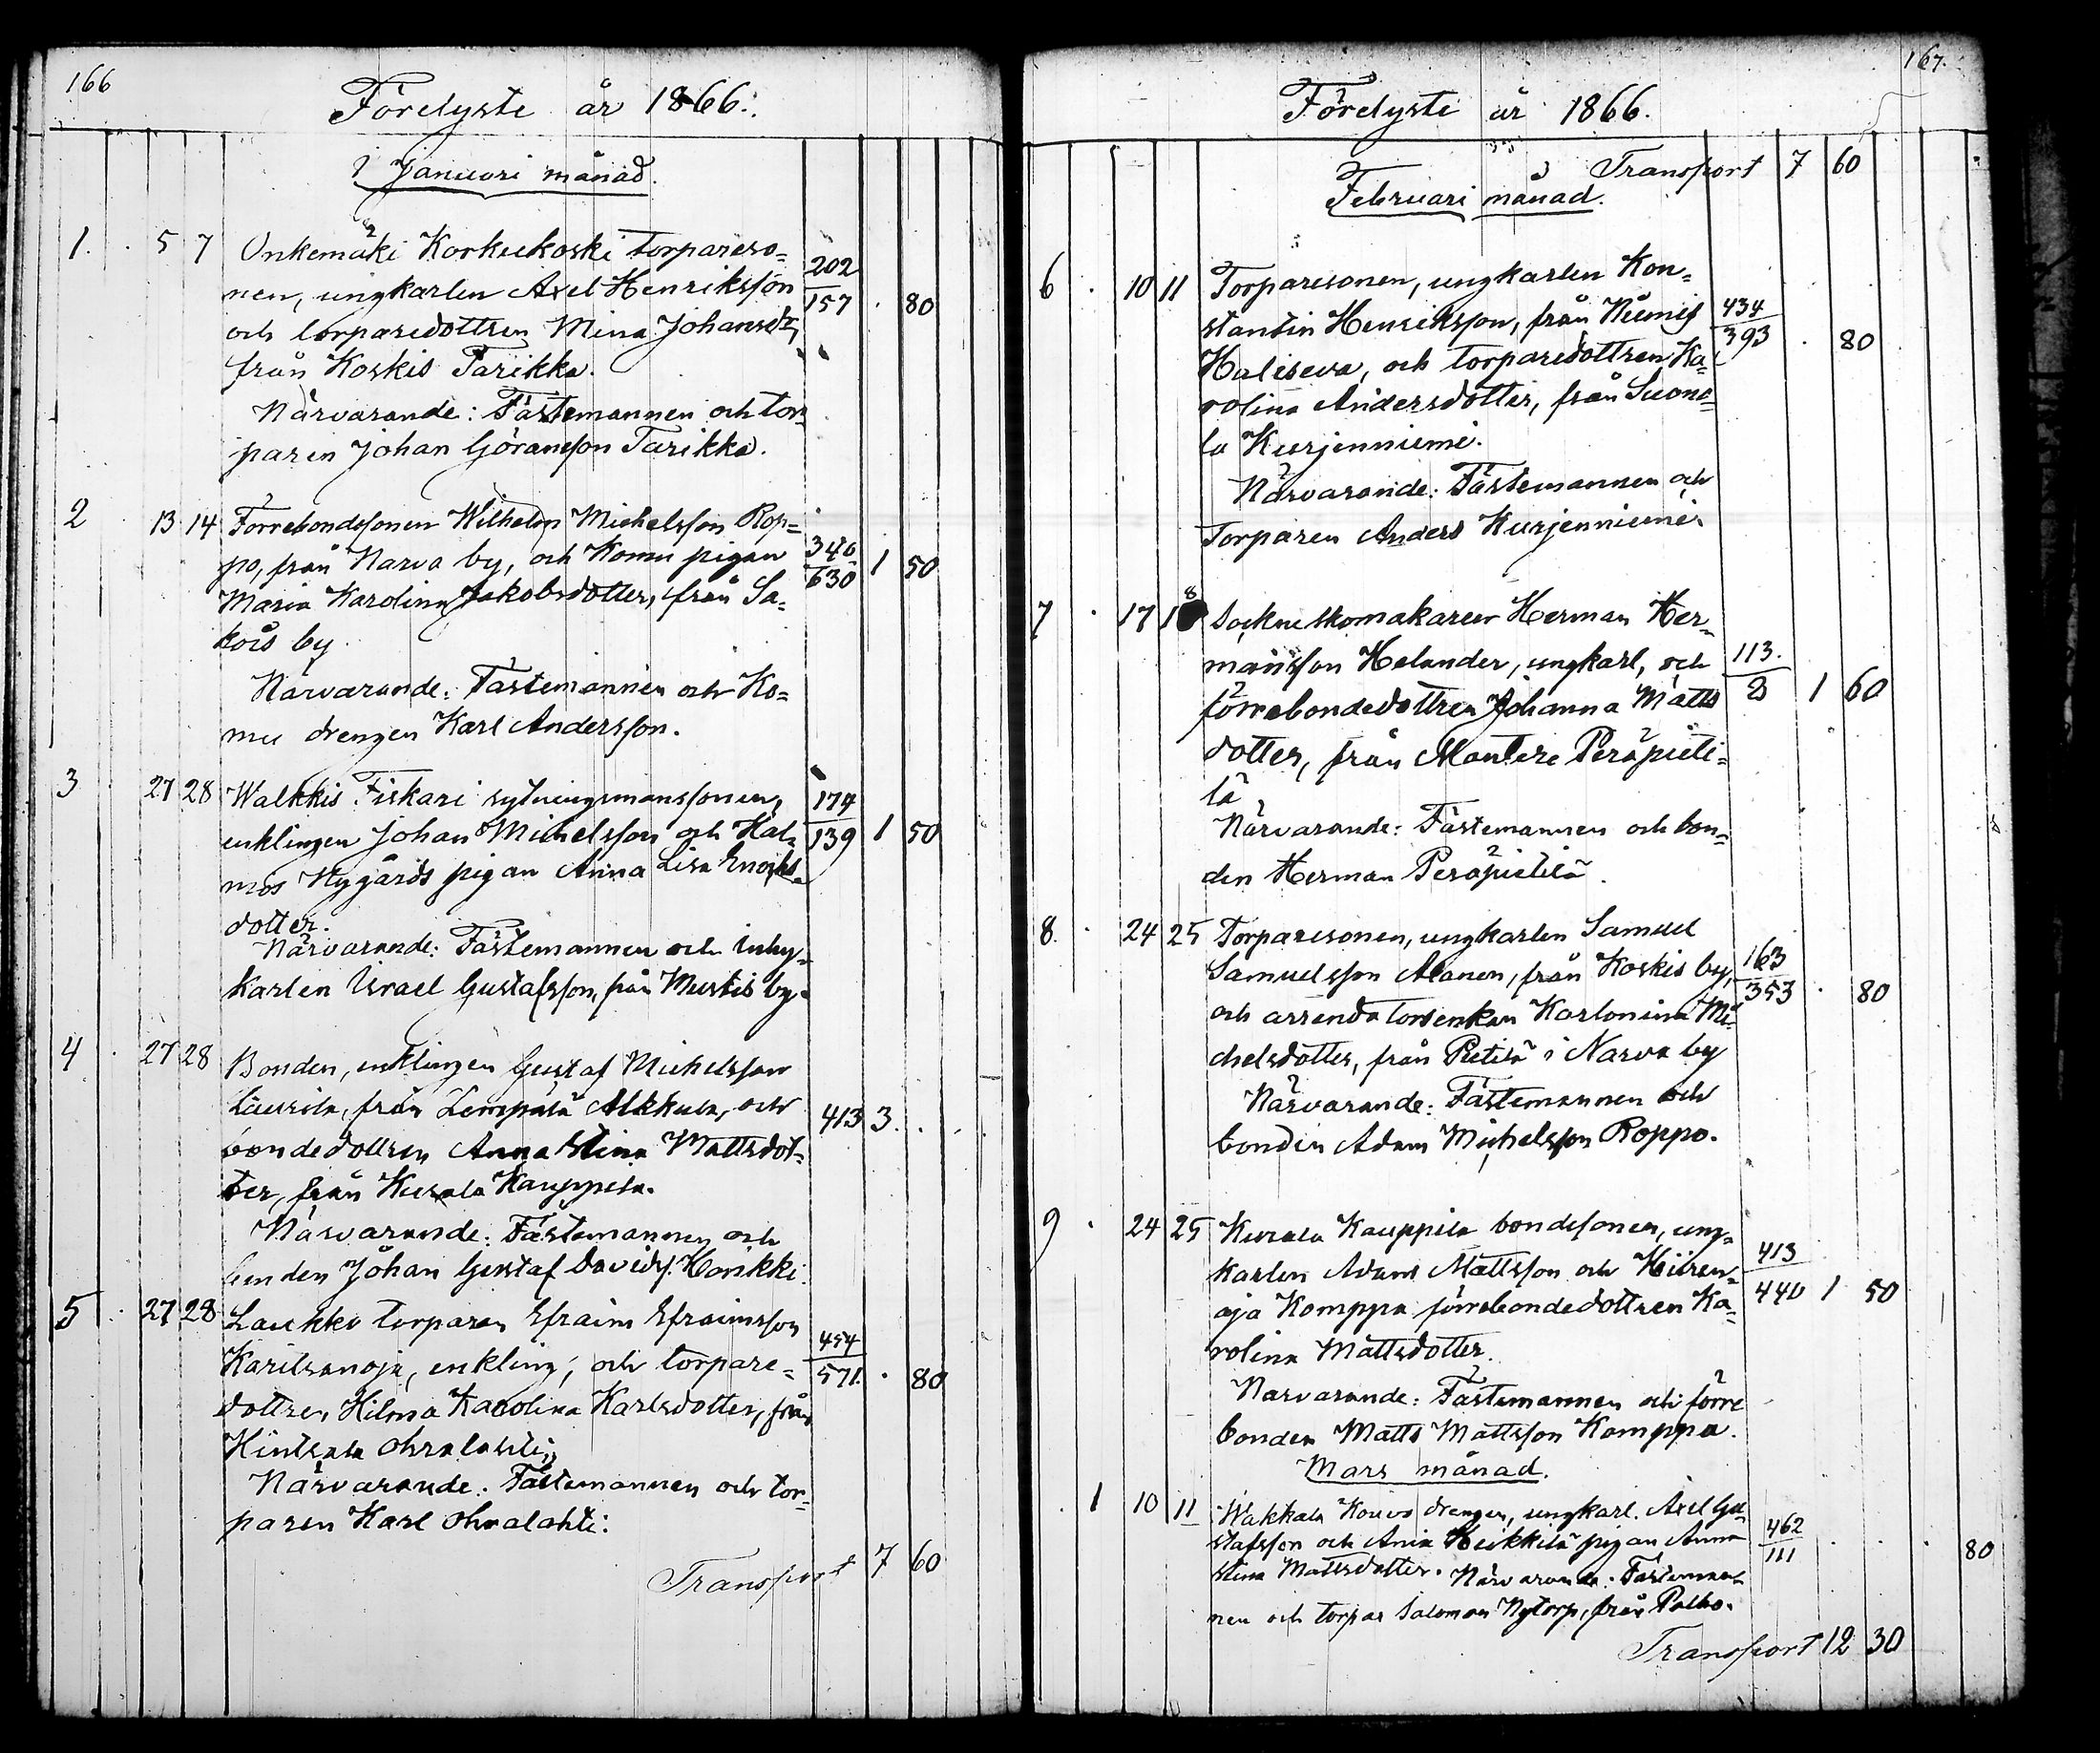 166
Förelyste år 1866.
I Januari månad.
1. 5 7 Onkemäki Korkeekoski torpareso=
nen, ungkarlen Axel Henriksson 202
och torparedottren Mina Johansdtr, 157 . 80
från Koskis Tarikka.
Närvarande: Fästemannen och tor=
paren Johan Göransson Tarikka.
2 13 14 Förrebondesonen Wilhelm Michelsson Rop=
po, från Narva by, och Komu pigan 346
Maria Karolina Jakobsdotter, från Sa= 630 1 50
kois by
Närvarande: Fästemannen och Ko=
mu drengen Karl Andersson.
3 27 28 Walkkis Fiskari sytningsmanssonen, 174
enklingen Johan Michelsson och Hal= 139 1 50
mos Nygårds pigan Anna Lisa Enoks=
dotter.
Närvarande: Fästemannen och inhy=
karlen Israel Gustafsson, från Mustis by.
4 27 28 Bonden, enklingen Gustaf Michelsson
Laurila, från Lempälä Alkkula, och 413 3. .
bondedottren Anna Stina Mattsdot=
ter, från Kurala Kauppila.
Närvarande: Fästemannen och
bonden Johan Gustaf Davids. Honkki.
5 27 28 Laukko torparen Efraim Efraimsson 454
Karilanoja, enkling, och torpare= 571. . 80
dottren Hilma Karolina Karlsdotter, från
Hintsala Ohralahti.
Närvarande: Fästemannen och tor=
paren Karl Ohralahti.
Transport 7 60
167.
Förelyste år 1866.
Transport 7 60
I Februari månad.
6 10 11 Torparesonen, ungkarlen Kon=
stantin Henriksson, från Niemis 434
Haliseva, och torparedottren Ka= 393 . 80
rolina Andersdotter, från Suono=
la Kurjenniemi.
Närvarande: Fästemannen och
Torparen Anders Kurjenniemi.
7 17 18 Sockneskomakaren Herman Her=
mansson Helander, ungkarl, och 113.
förrebondedottren Johanna Matts 8 1 60
dotter, från Mantere Peräpieti=
lä
Närvarande: Fästemannen och bon=
den Herman Peräpietilä.
8. 24 25 Torparesonen, ungkarlen Samuel
Samuelsson Alanen, från Koskis by, 163
och arrendatorsenkan Karlonina Mi= 353 . 80
chelsdotter, från Pietilä i Narva by
Närvarande: Fästemannen och
bonden Adam Michelsson Roppo.
9 24 25 Kurala Kauppila bondesonen, ung=
karlen Adam Mattsson och Hiiren= 413
oja Komppa förrebondedottren Ka= 440 1 50
rolina Mattsdotter.
Närvarande: Fästemannen och förre
bonden Matts Mattsson Komppa.
Mars månad.
1 10 11 Wakkala Kouvo drengen, ungkarl. Axel Gu=
stafsson och Ania Heikkilä pigan Anna 462
Stina Mattsdotter. Närvarande: Fäteman= 111 . . . 80
nen och torpar Salomon Nytorp, från Palho.
Transport 12 30